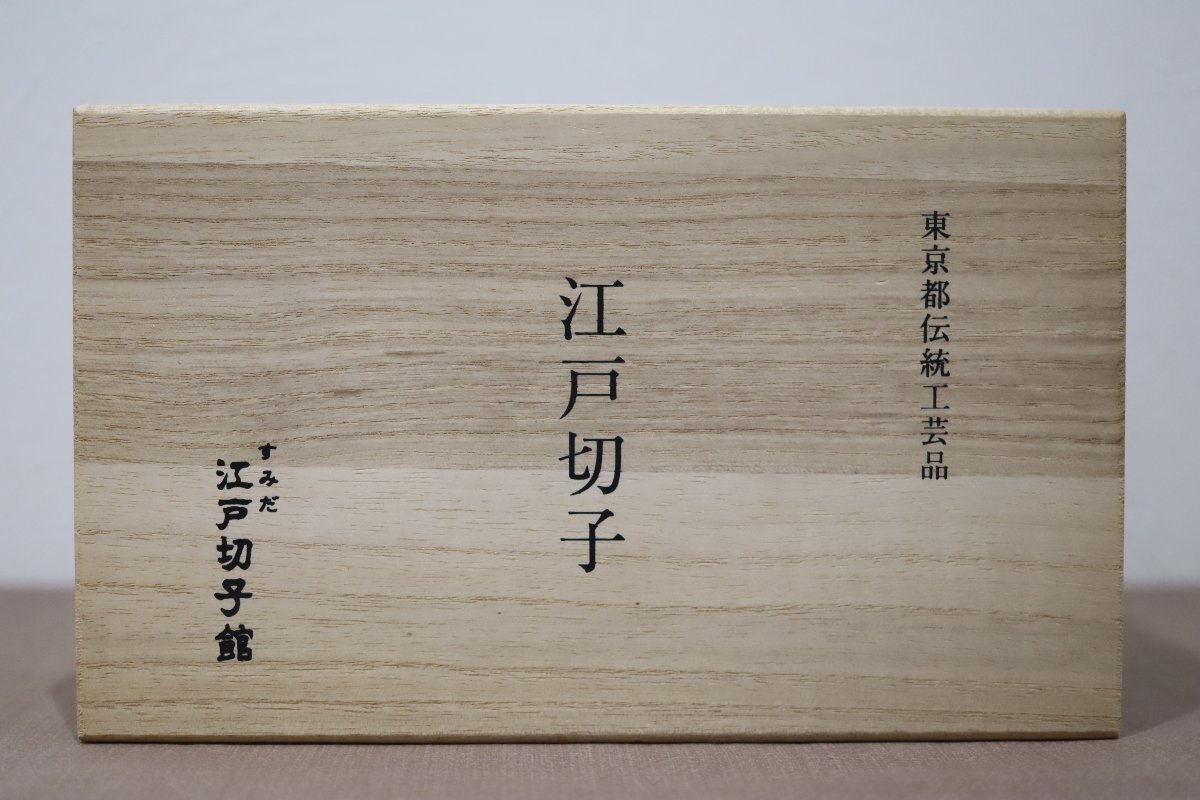 東京都伝統工芸品
江戸切子
すみだ
江戸切子館